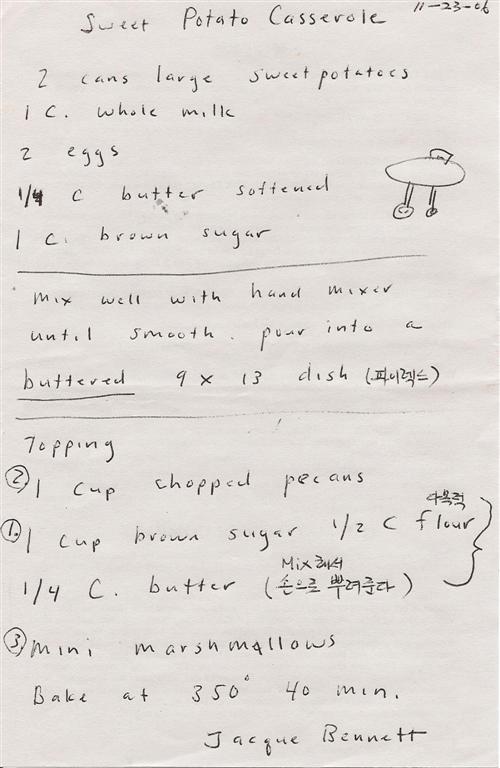 Sweet Potato Casserole 11-23-06
2 cans large sweetpotatoes
1 C. whole milk
2 eggs
1/4 C butter softened
1 C. brown sugar
Mix well with hand mixer
until smooth. pour into a
buttered 9 x 13 dish (파이렉스)
Topping
② 1 cup chopped pecans
① 1 cup brown sugar 1/2 C flour
1/4 C. butter (Mix해서 손으로 뿌려준다)
③ Mini marshmallows
Bake at 350° 40 min.
Jacque Bennett